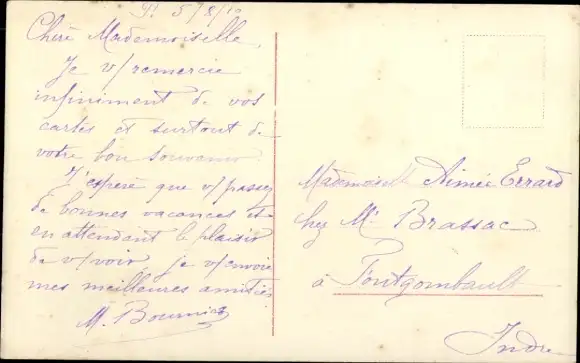 5/8/10
Chère Mademoiselle,
Je v/remercie
infiniment de vos
cartes et surtout de
votre bon souvenir.
J'espère que v/passez
de bonnes vacances et
en attendant le plaisir
de v/voir, je v/envoie
mes meilleures amitiés
M.
Mademoiselle Aimée Errard
chez Mr Brassac
à Fontgombault
Indre